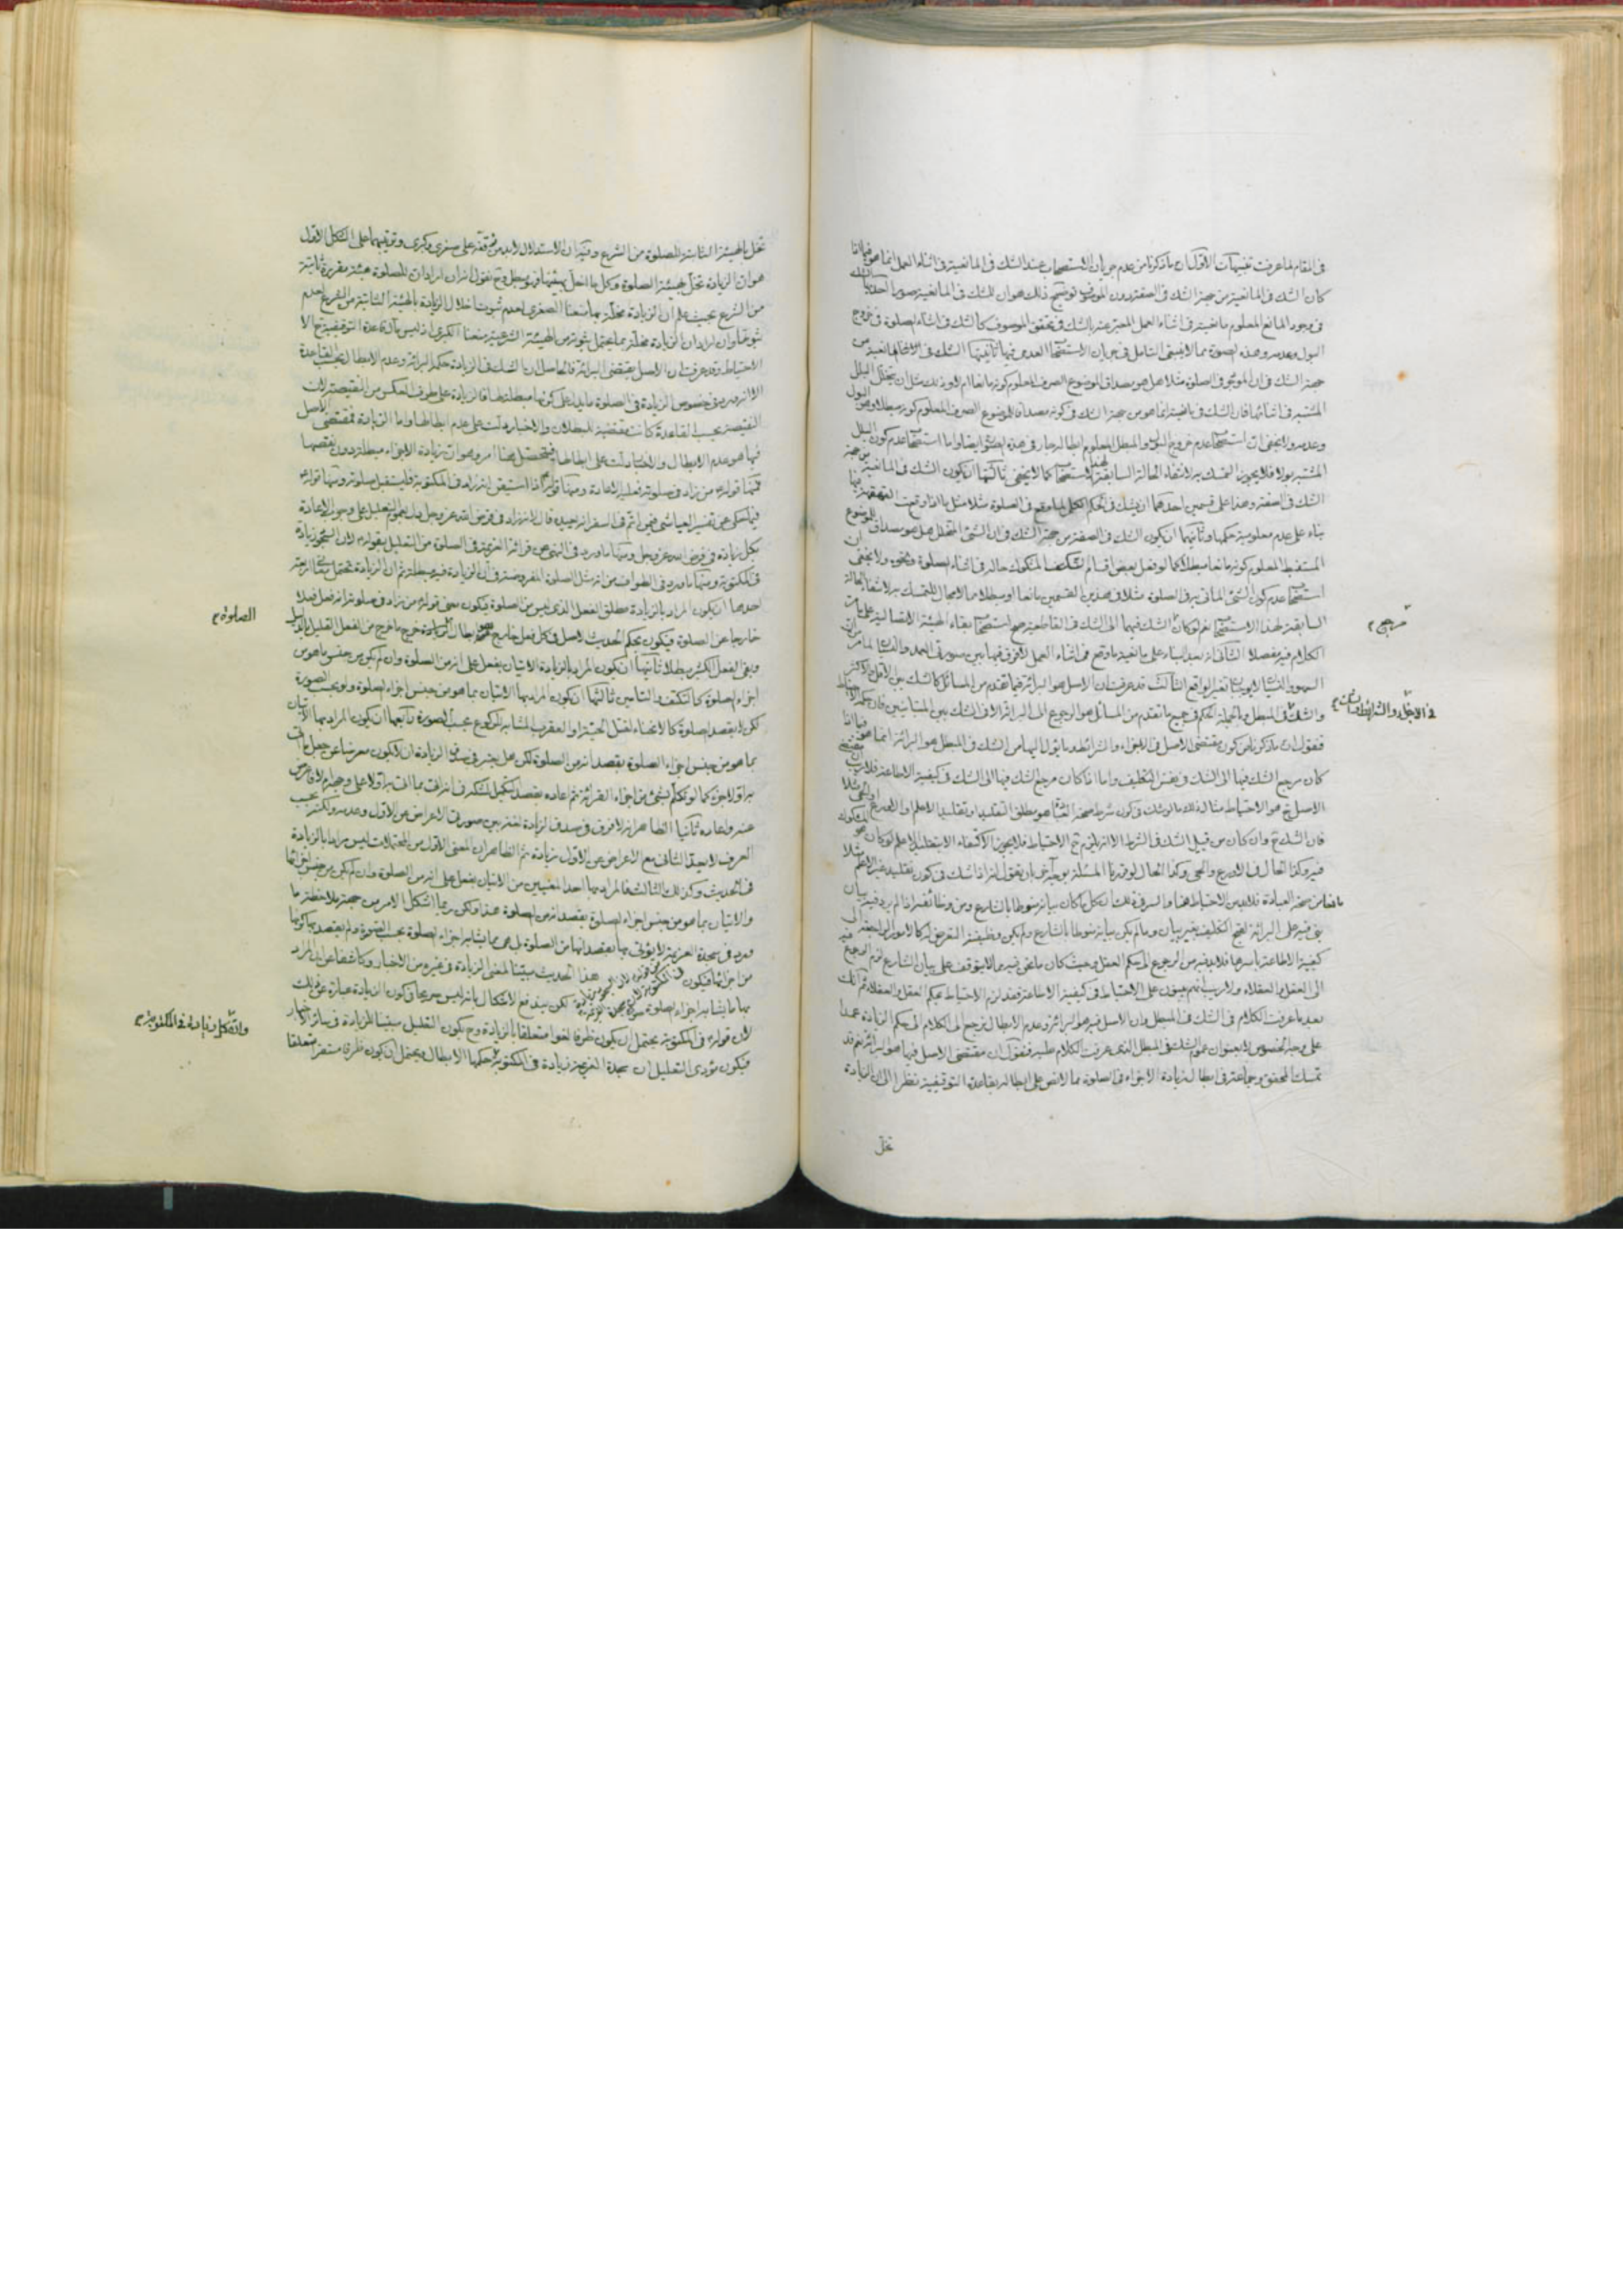 في المقام لما عرفت تنبيهات الاول ان ما ذكرنا من عدم جريان الاستصحاب عند الشك في المانعية في اثناء العمل انما هو فيما اذا
كان الشك في المانعية من جهة الشك في الصفة دون الموصوف توضيح ذلك هو ان للشك في المانعية صورا احدها الشك
في وجود المانع المعلوم مانعيته في اثناء العمل المعبر عنه بالشك في تحقق الموصوف كالشك في اثناء الصلوة في خروج
البول وعدمه وهذه الصورة مما لا ينبغي التامل في جريان الاستصحاب العدمي فيها ثانيها الشك في المانعية من
جهة الشك في ان الموجود في الصلوة مثلا هل هو مصداق الموضوع الصرف المعلوم كونه مانعا ام لا وذلك مثل ان يتخلل البلل
المشتبه في اثنائها فان الشك في مانعيته انما هو من جهة الشك في كونه مصداقا للموضوع الصرف المعلوم كونه مبطلا وهو البول
وعدمه ولا يخفى ان استصحاب عدم خروج البول المبطل المعلوم ابطاله جار في هذه الصورة ايضا واما استصحاب عدم كون البلل
المشتبه بولا فلا يجوز التمسك به لانتفاء الحالة السابقة لهذا الاستصحاب كما لا يخفى ثالثها ان يكون الشك في المانعية من جهة
الشك في الصفة وهذا على قسمين احدهما ان يشك في الحكم الكلي لما وقع في الصلوة مثلا مثل ما اذا وقعت القهقهة فيها
بناء على عدم معلومية حكمها وثانيهما ان يكون الشك في الصفة من جهة الشك في ان الشيء المتخلل هل هو مصداق للموضوع
المستنبط المعلوم كونه مانعا مبطلا كما لو فعل بعض اقسام المشكوك حاله في اثناء الصلوة ونحوه ولا يخفى ان
استصحاب عدم كون الشيء الماتي به في الصلوة مثلا في هذين القسمين مانعا او مبطلا مما لا مجال للتمسك به لانتفاء الحالة
السابقة لهذا الاستصحاب نعم لو كان الشك فيهما الى الشك في القاطعية صح استصحاب بقاء الهيئة الاتصالية على ما مر
مرجع
الكلام فيه مفصلا الثاني انه بعد البناء على مانعية ما وقع في اثناء العمل لا فرق فيها بين صورتي العمد والنسيان لما مر من ان
السهو والنسيان لا يوجبان تغير الواقع الثالث قد عرفت ان الاصل هو البرائة فيما تقدم من المسائل كالشك بين الاقل والاكثر
في الاجزاء والشرائط
والشك في المبطل وبالجملة الحكم في جميع ما تقدم من المسائل هو الرجوع الى البرائة الا في الشك بين المتباينين فان حكمه الاحتياط
فنقول ان ما ذكرنا من كون مقتضى الاصل في الاجزاء والشرائط وما يؤل اليها من الشك في المبطل هو البرائة انما هو فيما اذا
كان مرجع الشك فيها الى الشك في نفس التكليف واما اذا كان مرجع الشك فيها الى الشك في كيفية الاطاعة فلا ريب ان مقتضى
الاصل ح هو الاحتياط مثال ذلك ما لو شك في كون شرط صحة العبادة هو مطلق التقليد او تقليد الاعلم والاورع او الحي مثلا
فان الشك ح وان كان من قبيل الشك في الشرط الا انه يلزم ح الاحتياط فلا يجوز الاكتفاء الا بتقليد الاعلم لو كان هو المشكوك
فيه وكذا الحال في الاورع والحي وكذا الحال لو قررنا المسئلة بوجه آخر بان نقول انه اذا شك في كون تقليد غير الاعلم مثلا
مانعا من صحة العبادة فلا بد من الاحتياط هنا والسر في ذلك ان كل ما كان بيانه منوطا بالشارع ومن وظائفه اذا لم يرد فيه بيان
بنى فيه على البرائة لقبح التكليف بغير بيان وما لم يكن بيانه منوطا بالشارع ولم يكن وظيفته التعرض له كالامور الراجعة الى
كيفية الاطاعة باسرها فلا بد فيه من الرجوع الى حكم العقل وحيث كان ما نحن فيه مما لا يتوقف على بيان الشارع لزم الرجوع فيه
الى العقل والعقلاء ولا ريب انهم يبنون على الاحتياط في كيفية الاطاعة فقد لزم الاحتياط بحكم العقل والعقلاء ثم انك
بعد ما عرفت الكلام في الشك في المبطل وان الاصل فيه هو البرائة وعدم الابطال نرجع الى الكلام الى حكم الزيادة عمدا
على وجه الخصوص لا بعنوان عموم الشك في المبطل الذي عرفت الكلام عليه فنقول ان مقتضى الاصل فيها هو البرائة نعم قد
تمسك المحقق وجماعة في ابطال زيادة الاجزاء في الصلوة مما لا نص على ابطاله بقاعدة التوقيفية نظرا الى ان الزيادة
تخل
تخل بالهيئة الثابتة للصلوة من الشرع وفيه ان الاستدلال لا بد من توقفه على صغرى وكبرى وترتيبهما على الشكل الاول
هو ان الزيادة تخل بهيئة الصلوة وكل ما اخل بهيئتها فهو مبطل وح نقول انه ان اراد ان للصلوة هيئة مقررة ثابتة
من الشرع بحيث علم ان الزيادة مخلة بها منعنا الصغرى لعدم ثبوت اخلال الزيادة بالهيئة الثابتة من الشرع لعدم
ثبوتها وان اراد ان الزيادة مخلة بما يحتمل ثبوته من الهيئة الشرعية منعنا الكبرى اذ ليس مآل قاعدة التوقيفية ح الا
الاحتياط وقد عرفت ان الاصل يقتضي البرائة فالحاصل ان الشك في الزيادة حكمه البرائة وعدم الابطال بحسب القاعدة
الا انه ورد في خصوص الزيادة في الصلوة ما يدل على كونها مبطلة لها فالزيادة على طرف العكس من النقيصة لان
النقيصة بحسب القاعدة كانت مقتضية للبطلان والاخبار دلت على عدم ابطالها واما الزيادة فمقتضى الاصل
فيها هو عدم الابطال والاخبار دلت على ابطالها فيتحصل هنا امر وهو ان زيادة الاجزاء مبطلة دون نقصها
فمنها قوله من زاد في صلوته فعليه الاعادة ومنها قوله اذا استيقن انه زاد في المكتوبة فليستقبل صلوته ومنها قوله
فيما حكي عن تفسير العياشي فيمن اتم في السفر انه يعيد قال لانه زاد في فرض الله عز وجل دل بعموم التعليل على وجوب الاعادة
بكل زيادة في فرض الله عز وجل ومنها ما ورد في النهي عن قرائة العزيمة في الصلوة من التعليل بقوله لان السجود زيادة
في المكتوبة ومنها ما ورد في الطواف من انه مثل الصلوة المفروضة في ان الزيادة فيه مبطلة ثم ان الزيادة تحتمل معاني اربعة
احدها ان يكون المراد بالزيادة مطلق الفعل الذي ليس من الصلوة فيكون معنى قوله من زاد في صلوته انه فعل فعلا
الصلوة
خارجا عن الصلوة فيكون بحكم الحديث الاصل في كل فعل خارج هو ابطال خرج ما خرج من الفعل القليل بالدليل
وبقي الفعل الكثير مبطلا ثانيها ان يكون المراد بالزيادة الاتيان بفعل على انه من الصلوة وان لم يكن من جنس ما هو من
اجزاء الصلوة كالتكتف والتامين ثالثها ان يكون المراد بها الاتيان بما هو من جنس اجزاء الصلوة ولو بحسب الصورة
لكن لا بقصد الصلوة كالانحناء لقتل الحية او العقرب المشابه للركوع بحسب الصورة رابعها ان يكون المراد بها الاتيان
بما هو من جنس اجزاء الصلوة بقصد انه من الصلوة لكن هل يعتبر في صدق الزيادة ان لا يكون معرضا عن جعل ما اتى
به اولا جزء كما لو تكلم بشيء من اجزاء القرائة ثم اعاده بقصد
عنه واعاده ثانيا الظاهر انه لا فرق في صدق الزيادة لغة بين صورتي الاعراض عن الاول وعدمه ولكنه بحسب
العرف لا يعد الثاني مع الاعراض عن الاول زيادة ثم الظاهر ان المعنى الاول من المحتملات ليس مرادا بالزيادة
في الحديث وكذلك الثالث فالمراد بها احد المعنيين من الاتيان بفعل على انه من الصلوة وان لم يكن من جنس اجزائها
والاتيان بما هو من جنس اجزاء الصلوة بقصد انه من الصلوة هذا ولكن ربما اشكل الامر من جهة ملاحظة ما
ورد في سجدة العزيمة لا يؤتى بها بقصد انها من الصلوة بل هي مما يشابه اجزاء الصلوة بحسب الصورة ولم يقصد بها كونها
من اجزائها فيكون هذا الحديث مبينا لمعنى الزيادة في غيره من الاخبار وكاشفا عن ان المراد
بها ما يشابه اجزاء الصلوة لكن يندفع الاشكال بانه ليس صريحا في كون الزيادة عبارة عن ذلك
وانه كل زيادة في المكتوبة
لان قوله في المكتوبة يحتمل ان يكون ظرفا لغوا متعلقا بالزيادة وح يكون التعليل مبينا للزيادة في سائر الاخبار
فيكون مؤدى التعليل ان سجدة العزيمة زيادة في المكتوبة حكمها الابطال ويحتمل ان يكون ظرفا مستقرا متعلقا